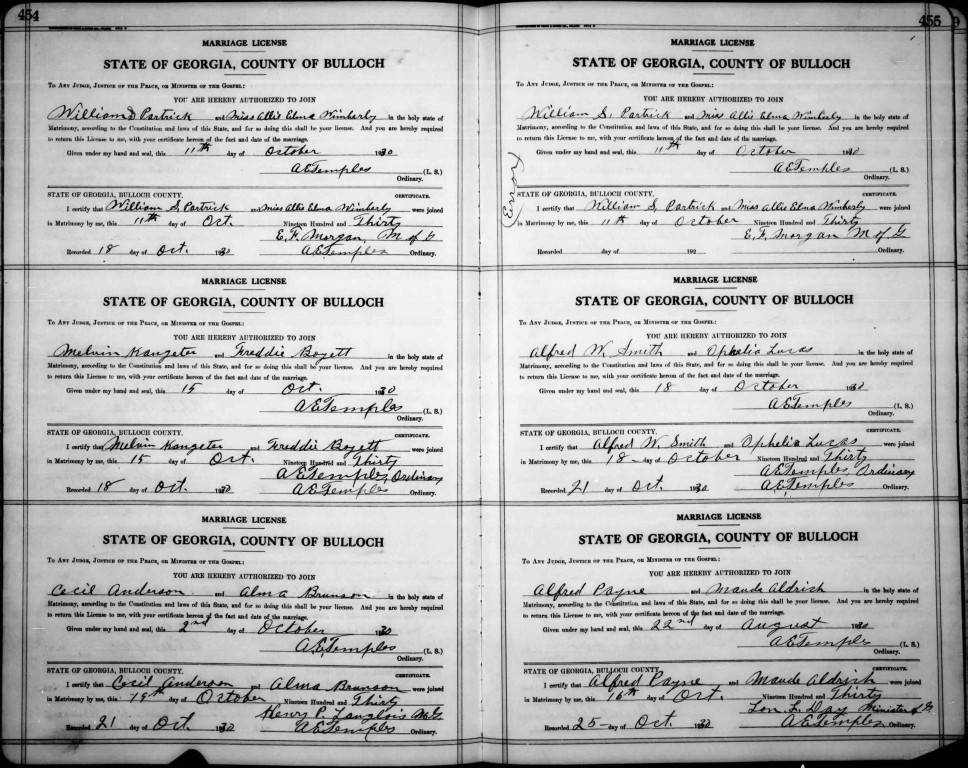 454
MARRIAGE LICENSE
STATE OF GEORGIA, COUNTY OF BULLOCH
To Any Judge, Justice of the Peace, or Minister of the Gospel:
YOU ARE HEREBY AUTHORIZED TO JOIN
William S Partrick and Miss Allie Elma Wimberly in the holy state of
Matrimony, according to the Constitution and laws of this State, and for so doing this shall be your license. And you are hereby required
to return this License to me, with your certificate hereon of the fact and date of the marriage.
Given under my hand and seal, this 11th day of October 1930
A.E. Temples (L. S.)
Ordinary.
STATE OF GEORGIA, BULLOCH COUNTY. CERTIFICATE.
I certify that William S. Partrick and Miss Allie Elma Wimberly were joined
in Matrimony by me, this 11th day of Oct. Nineteen Hundred and Thirty
E. F. Morgan, M of G
Recorded 18 day of Oct. 1930 A.E. Temples
Ordinary.
MARRIAGE LICENSE
STATE OF GEORGIA, COUNTY OF BULLOCH
To Any Judge, Justice of the Peace, or Minister of the Gospel:
YOU ARE HEREBY AUTHORIZED TO JOIN
Melvin Kangeter and Freddie Bogett in the holy state of
Matrimony, according to the Constitution and laws of this State, and for so doing this shall be your license. And you are hereby required
to return this License to me, with your certificate hereon of the fact and date of the marriage.
Given under my hand and seal, this 15 day of Oct. 1930
A.E. Temples (L. S.)
Ordinary.
STATE OF GEORGIA, BULLOCH COUNTY. CERTIFICATE.
I certify that Melvin Kangeter and Freddie Bogett were joined
in Matrimony by me, this 15 day of Oct. Nineteen Hundred and Thirty
A.E. Temples, Ordinary
Recorded 18 day of Oct. 1930 A.E. Temples Ordinary.
MARRIAGE LICENSE
STATE OF GEORGIA, COUNTY OF BULLOCH
To Any Judge, Justice of the Peace, or Minister of the Gospel:
YOU ARE HEREBY AUTHORIZED TO JOIN
Cecil Anderson and Alma Brunson in the holy state of
Matrimony, according to the Constitution and laws of this State, and for so doing this shall be your license. And you are hereby required
to return this License to me, with your certificate hereon of the fact and date of the marriage.
Given under my hand and seal, this 2nd day of October 1930
A.E. Temples (L. S.)
Ordinary.
STATE OF GEORGIA, BULLOCH COUNTY. CERTIFICATE.
I certify that Cecil Anderson and Alma Brunson were joined
in Matrimony by me, this 15th day of October Nineteen Hundred and Thirty
Henry P. Langlois M.G.
Recorded 21 day of Oct 1930 A.E. Temples Ordinary.
455
MARRIAGE LICENSE
STATE OF GEORGIA, COUNTY OF BULLOCH
To Any Judge, Justice of the Peace, or Minister of the Gospel:
YOU ARE HEREBY AUTHORIZED TO JOIN
William S. Partrick and Miss Allie Elma Wimberly in the holy state of
Matrimony, according to the Constitution and laws of this State, and for so doing this shall be your license. And you are hereby required
to return this License to me, with your certificate hereon of the fact and date of the marriage.
Given under my hand and seal, this 11th day of October 1930
A.E. Temples (L. S.)
Ordinary.
Error
STATE OF GEORGIA, BULLOCH COUNTY CERTIFICATE.
I certify that William S. Partrick and Miss Allie Elma Wimberly were joined
in Matrimony by me, this 11th day of October Nineteen Hundred and Thirty
E. F. Morgan M of G
Recorded day of 192
Ordinary.
MARRIAGE LICENSE
STATE OF GEORGIA, COUNTY OF BULLOCH
To Any Judge, Justice of the Peace, or Minister of the Gospel:
YOU ARE HEREBY AUTHORIZED TO JOIN
Alfred W. Smith and Ophelia Lucas in the holy state of
Matrimony, according to the Constitution and laws of this State, and for so doing this shall be your license. And you are hereby required
to return this License to me, with your certificate hereon of the fact and date of the marriage.
Given under my hand and seal, this 18 day of October 1930
A.E. Temples (L. S.)
Ordinary.
STATE OF GEORGIA, BULLOCH COUNTY. CERTIFICATE.
I certify that Alfred W. Smith and Ophelia Lucas were joined
in Matrimony by me, this 18 day of October Nineteen Hundred and Thirty
A.E. Temples Ordinary
Recorded 21 day of Oct. 1930 A.E. Temples Ordinary.
MARRIAGE LICENSE
STATE OF GEORGIA, COUNTY OF BULLOCH
To Any Judge, Justice of the Peace, or Minister of the Gospel:
YOU ARE HEREBY AUTHORIZED TO JOIN
Alfred Payne and Maude Aldrich in the holy state of
Matrimony, according to the Constitution and laws of this State, and for so doing this shall be your license. And you are hereby required
to return this License to me, with your certificate hereon of the fact and date of the marriage.
Given under my hand and seal, this 22nd day of August 1930
A.E. Temples (L. S.)
Ordinary.
STATE OF GEORGIA, BULLOCH COUNTY. CERTIFICATE.
I certify that Alfred Payne and Maude Aldrich were joined
in Matrimony by me, this 16th day of Oct. Nineteen Hundred and Thirty
Lon. L. Day Minister of G.
Recorded 25 day of Oct 1930 A.E. Temples Ordinary.